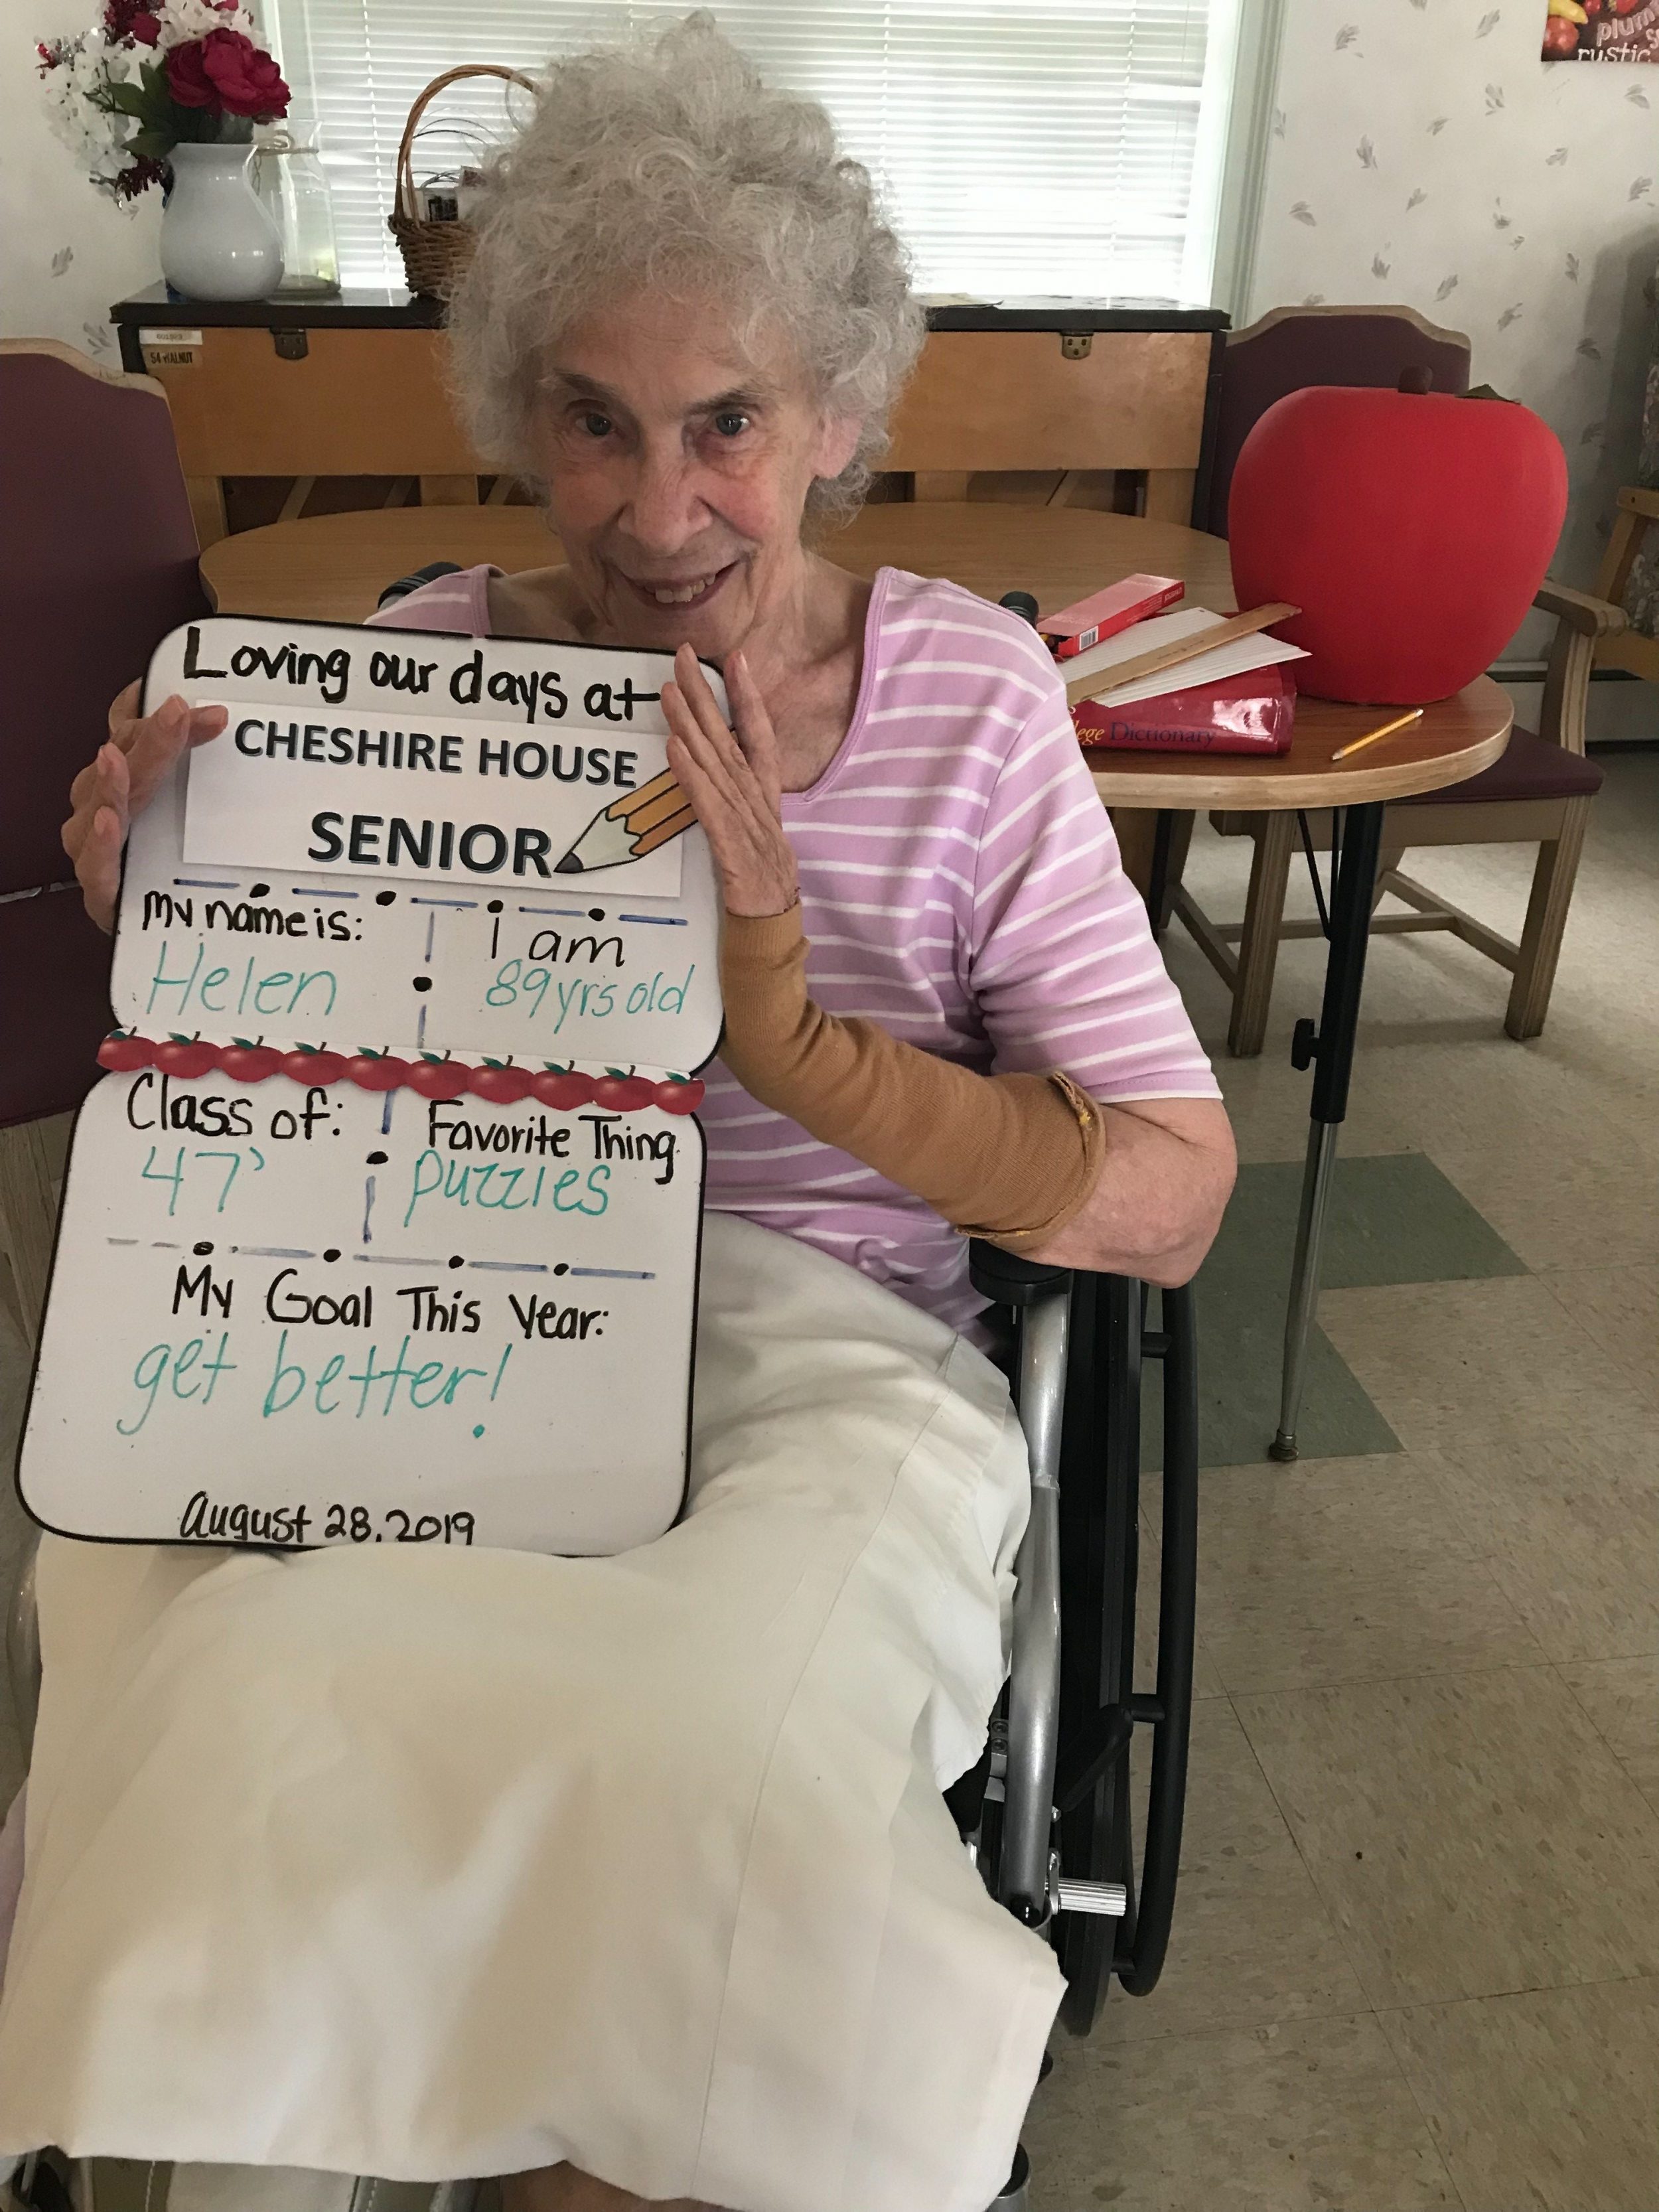 plum
rustic
54 WALNUT
Loving our days at
CHESHIRE HOUSE
SENIOR
My name is:
Helen
I am
89yrs old
Class of:
47'
Favorite Thing
puzzles
My Goal This Year:
get better!
August 28, 2019
ege Dictionary